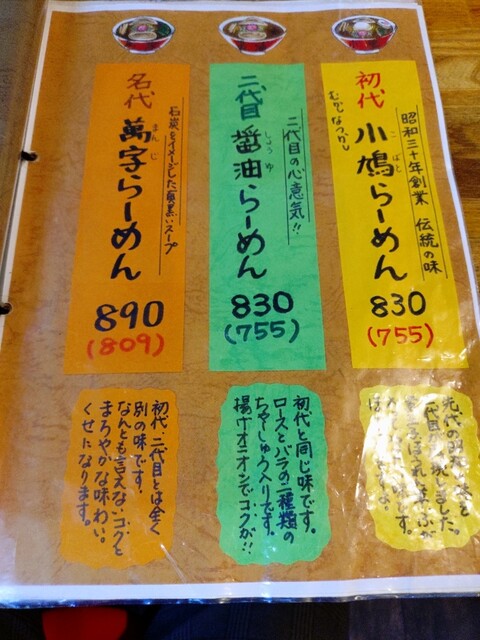 初代
むかしなつかし
小鳩らーめん
こばと
昭和三十年創業 伝統の味
830
(755)
二代目
醤油らーめん
しょうゆ
二代目の心意気!!
830
(755)
名代
萬字らーめん
まんじ
石炭をイメージした真黒いスープ
890
(809)
先代の
二代目が
初代と同じ味です。
ロースとバラの二種類の
ちゃーしゅう入りです。
揚げオニオンでコクが!!
初代、二代目とは全く
別の味です。
なんとも言えないコクと
まろやかな味わい。
くせになります。